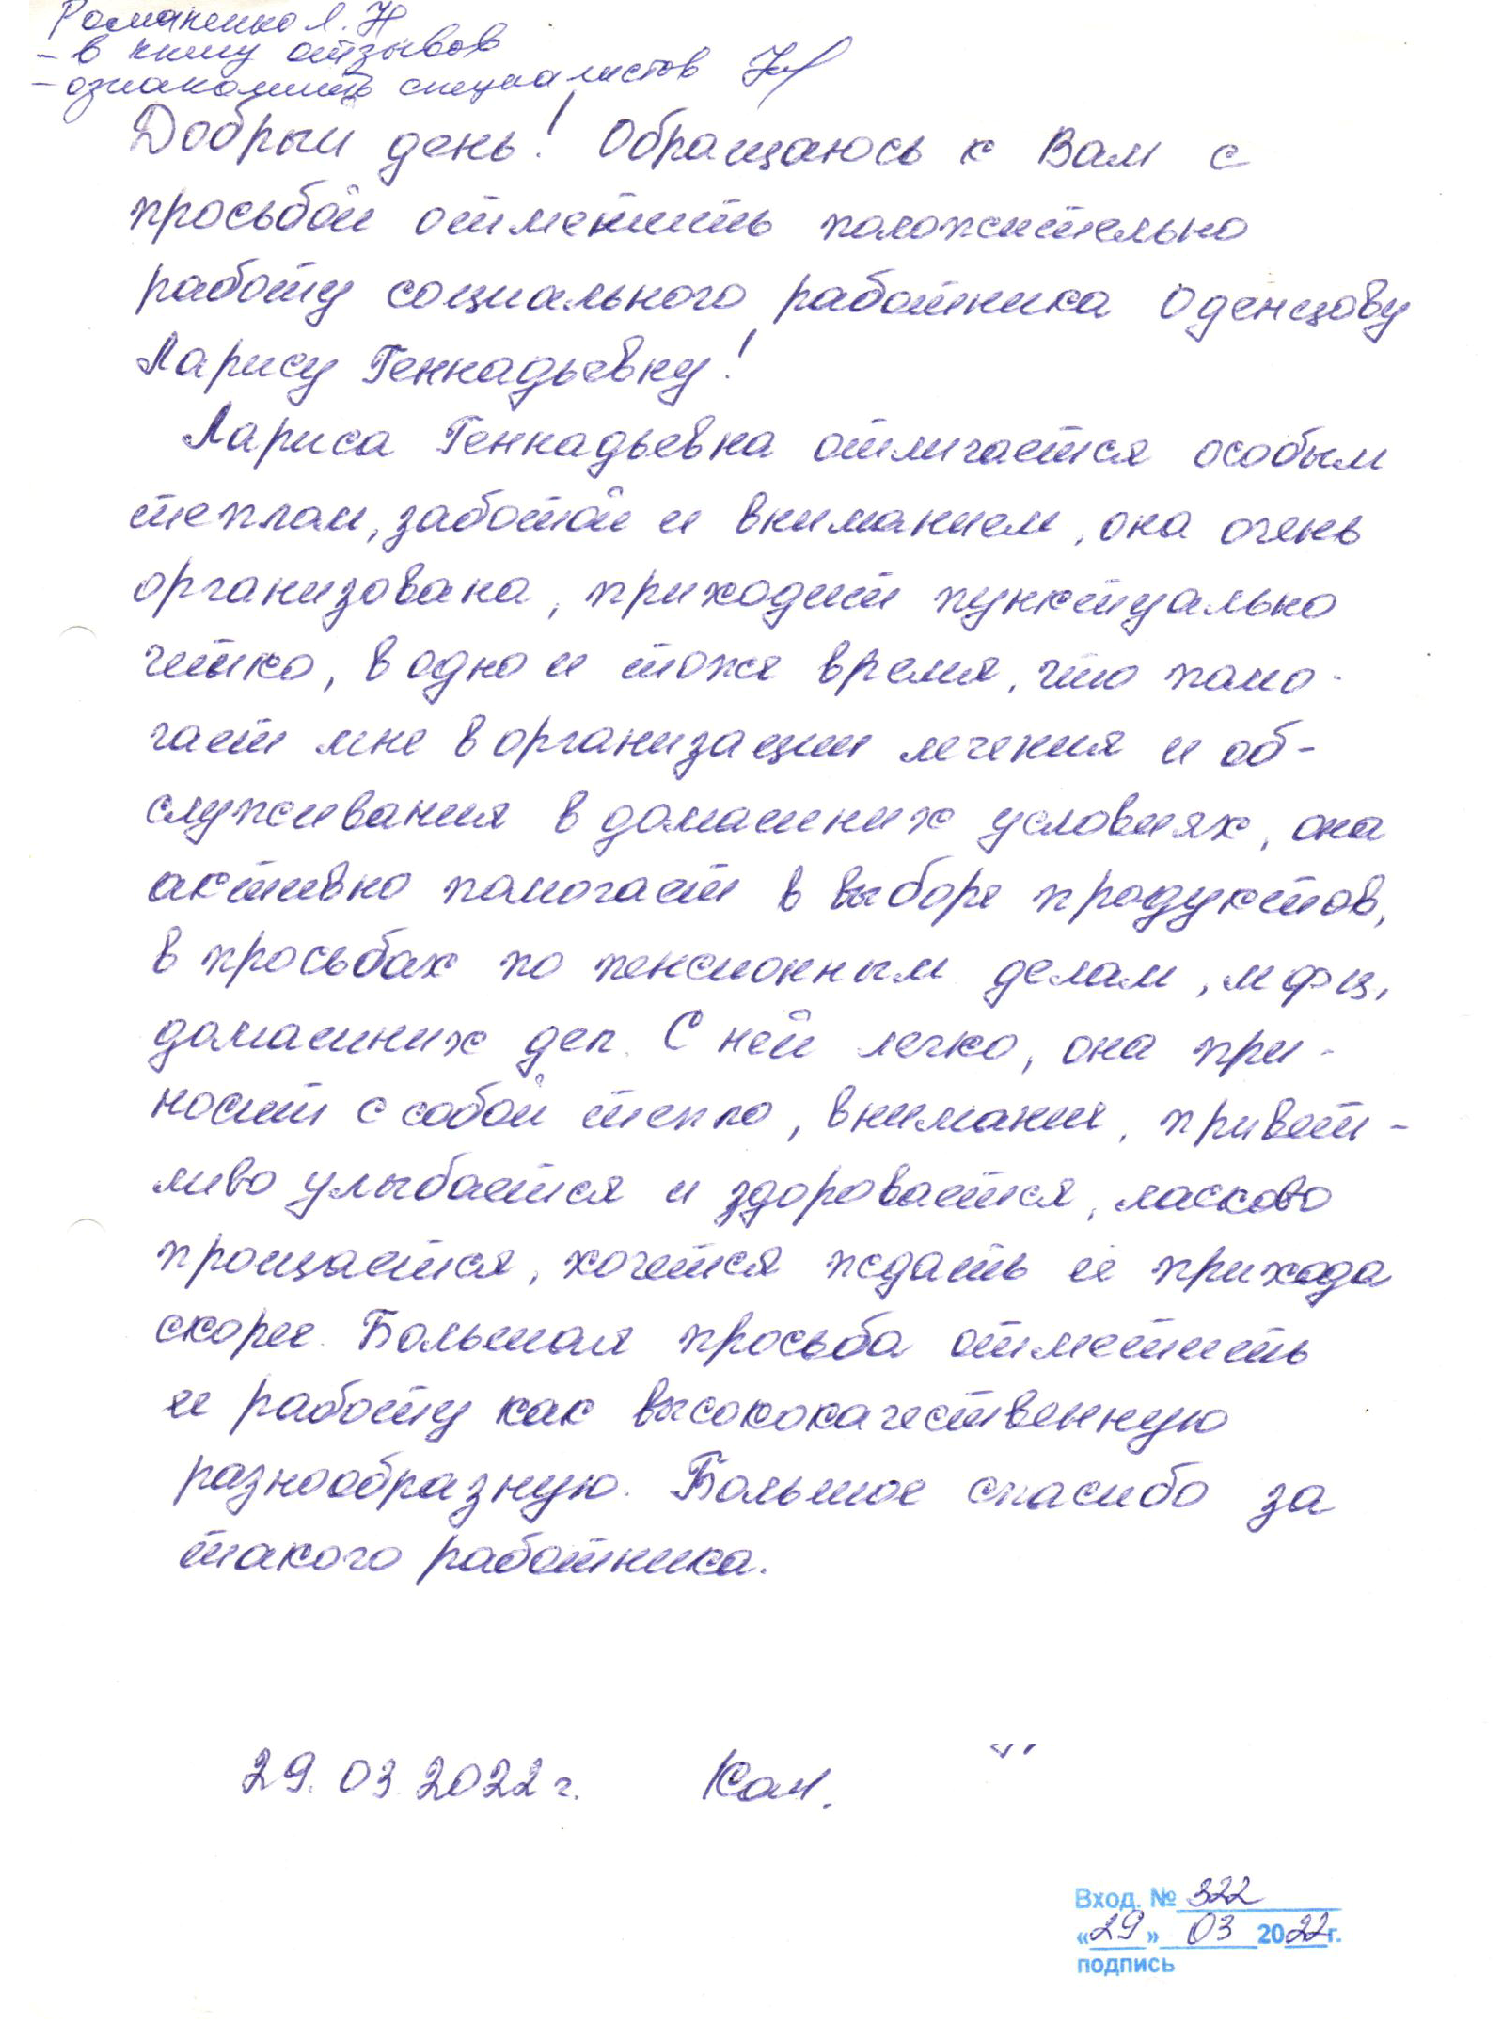 Романенко Я. Н
- в книгу отзывов
- ознакомить специалистов
Добрый день! Обращаюсь к Вам с
просьбой отметить положительно
работу социального работника Оденцову
Ларису Геннадьевну!
Лариса Геннадьевна отличается особым
теплом, заботой и вниманием, она очень
организована, приходит пунктуально
чётко, в одно и тоже время, что помо-
гает мне в организации лечения и об-
служивания в домашних условиях, она
активно помогает в выборе продуктов,
в просьбах по пенсионным делам, мфц,
домашних дел. С ней легко, она при-
носит с собой тепло, внимание, привет-
ливо улыбается и здоровается, ласково
прощается, хочется ждать её прихода
скорее. Большая просьба отметить
ее работу как высококачественную
разнообразную. Большое спасибо за
такого работника.
29.03.2022 г.
Вход. № 322
«29» 03 2022г.
подпись